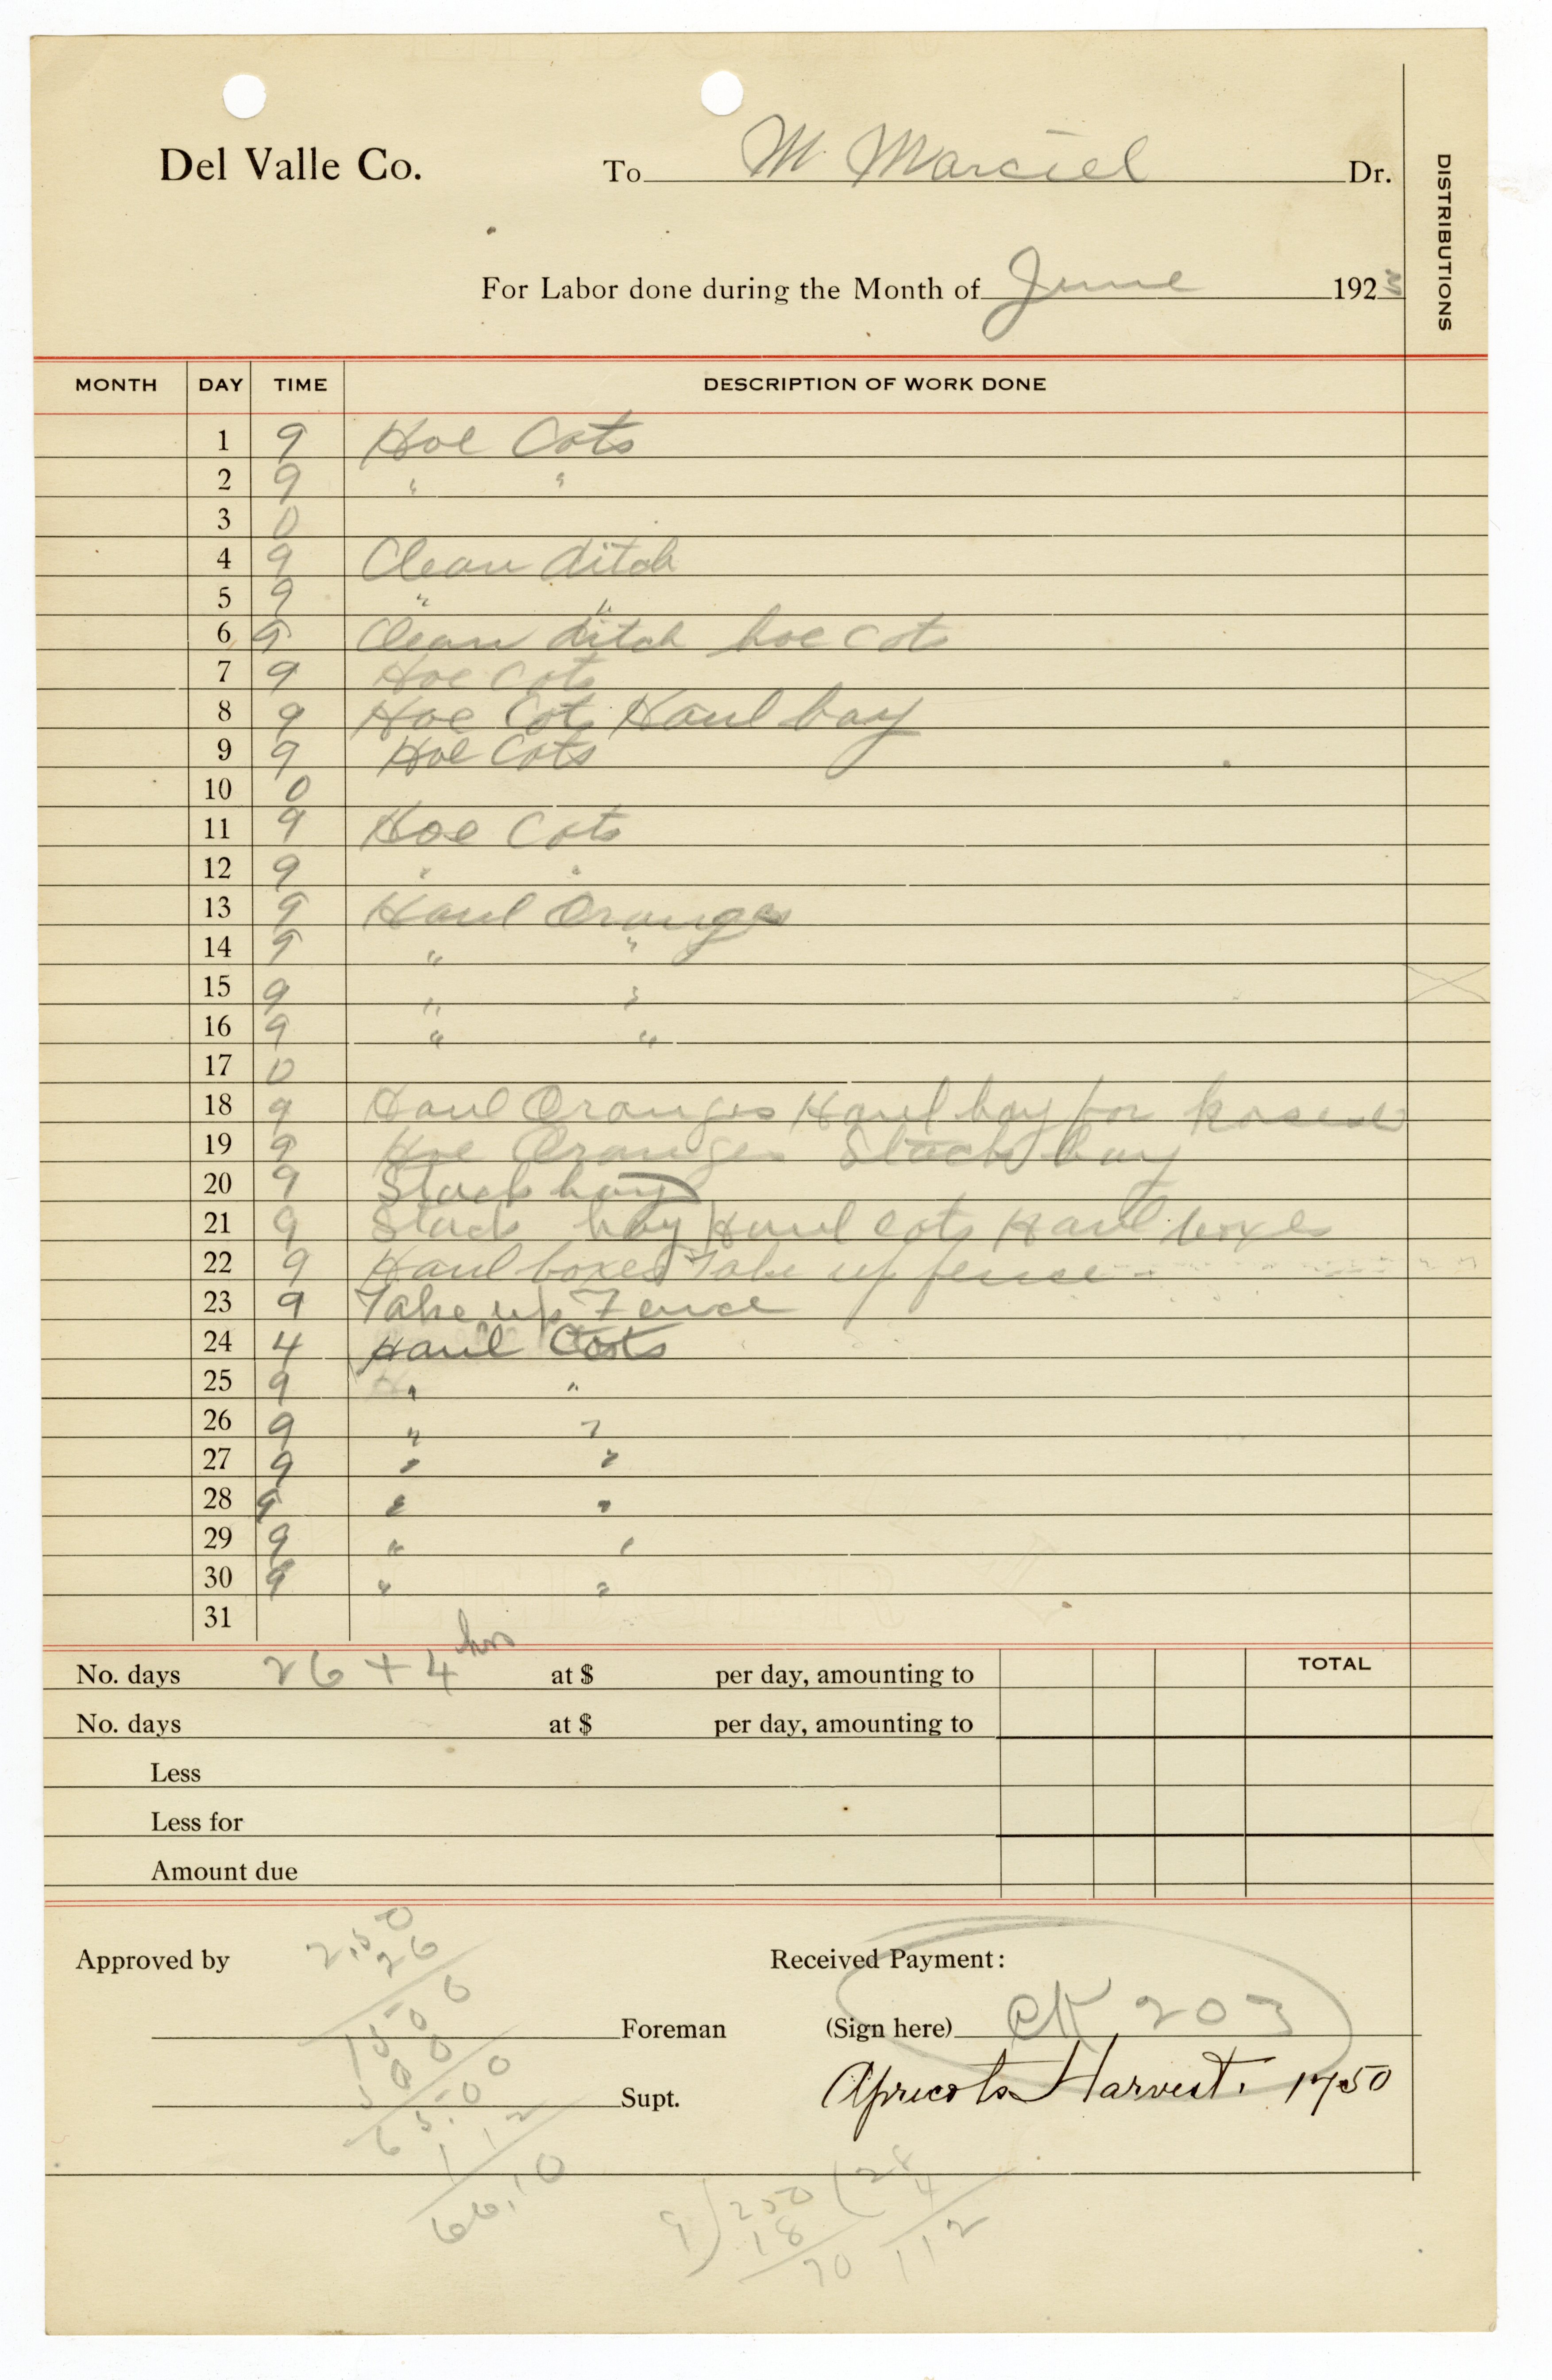 Del Valle Co. To M. Marciel Dr.
DISTRIBUTIONS
For Labor done during the Month of June 1923
MONTH DAY TIME DESCRIPTION OF WORK DONE
1 9 Hoe Cots
2 9 " "
3 0
4 9 Clean ditch
5 9 " "
6 9 Clean ditch hoe cots
7 9 Hoe Cots
8 9 Hoe Cots Haul hay
9 9 Hoe Cots
10 0
11 9 Hoe Cots
12 9 " "
13 9 Haul Oranges
14 9 " "
15 9 " "
16 9 " "
17 0
18 9 Haul Oranges Haul hay for
19 9 Hoe Oranges Stack hay
20 9 Stack hay
21 9 Stack hay Haul cots Haul boxes
22 9 Haul boxes Take up fence
23 9 Take up Fence
24 4 Haul Cots
25 9 " "
26 9 " "
27 9 " "
28 9 " "
29 9 " "
30 9 " "
31
No. days 26 + 4 hrs at $ per day, amounting to TOTAL
No. days at $ per day, amounting to
Less
Less for
Amount due
Approved by
Received Payment:
Foreman
(Sign here) CK 203
Supt.
Apricots Harvest. 1750
2.50
26
1500
500
65.00
112
66.10
9)250(28
18
70
4
112